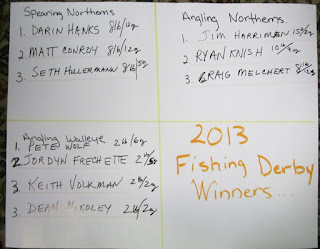 Spearing Northerns
1. DARIN HANKS 8lb/12oz
2. MATT CONROY 8lb/12oz
3. SETH HILLERMANN 8lb/5oz
Angling Northerns
1. JIM HARRIMAN 15/
2. RYAN KNISH
3. CRAIG MELCHERT
Angling Walleye
1. PETE WOLF 2lb/6oz
2. JORDYN FRECHETTE
3. KEITH VOLKMAN 2lb/2oz
3. DEAN NIKOLEY 2lb/2oz
2013
Fishing Derby
Winners...